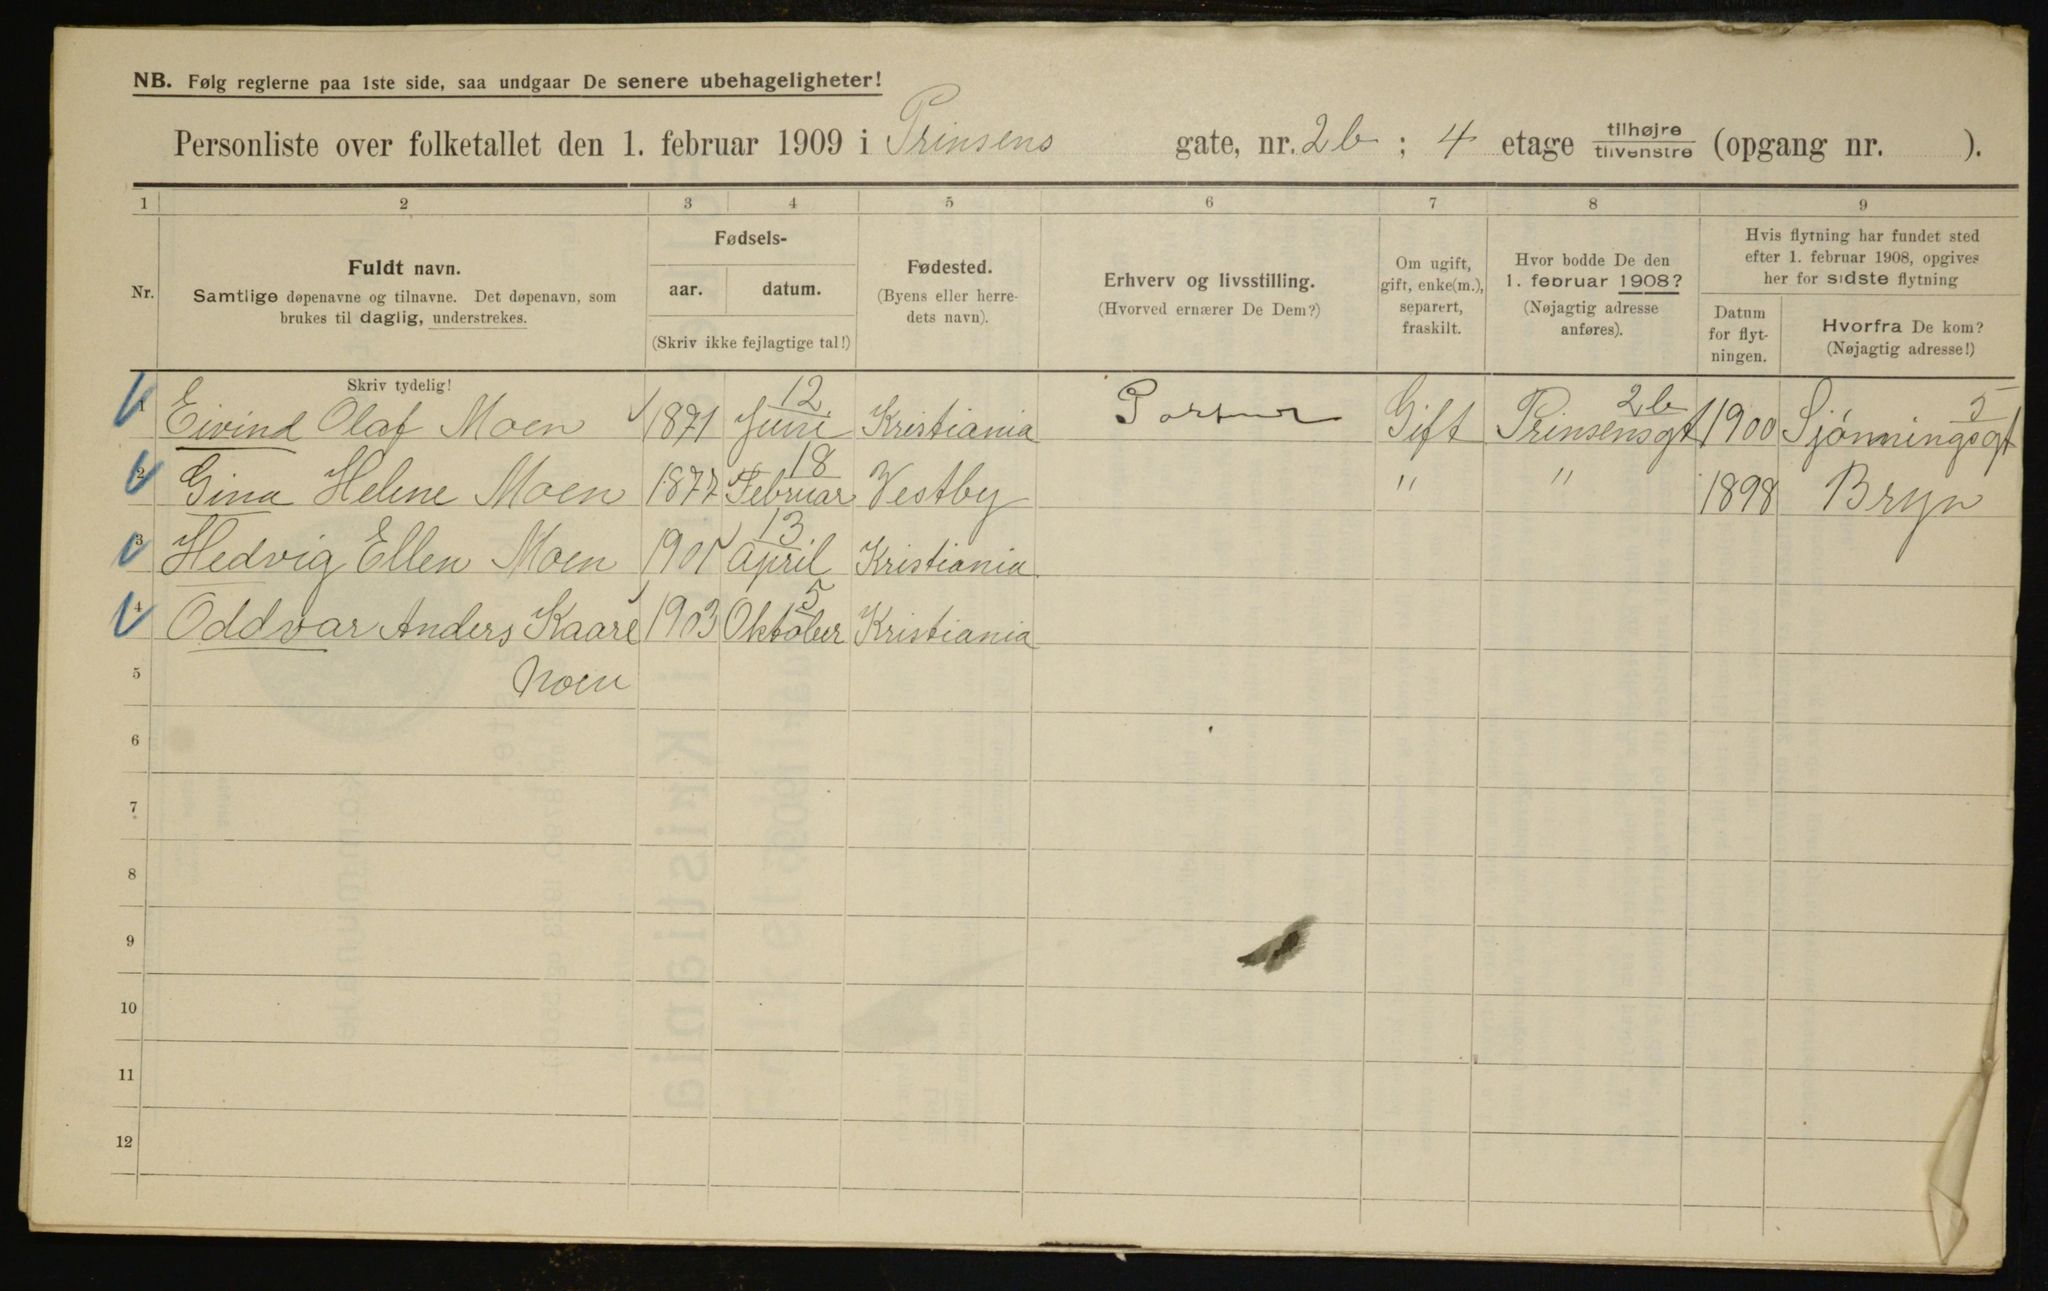 NB. Følg reglerne paa 1ste side, saa undgaar De senere ubehageligheter!
Personliste over folketallet den 1. februar 1909 i Prinsens gate, nr. 2b ; 4 etage tilhøjre / tilvenstre (opgang nr. ).
1 2 3 4 5 6 7 8 9
Nr.
Fuldt navn.
Samtlige døpenavne og tilnavne. Det døpenavn, som
brukes til daglig, understrekes.
Fødsels-
aar. datum.
(Skriv ikke fejlagtige tal!)
Fødested.
(Byens eller herre-
dets navn).
Erhverv og livsstilling.
(Hvorved ernærer De Dem?)
Om ugift,
gift, enke(m.),
separert,
fraskilt.
Hvor bodde De den
1. februar 1908?
(Nøjagtig adresse
anføres).
Hvis flytning har fundet sted
efter 1. februar 1908, opgives
her for sidste flytning
Datum
for flyt-
ningen.
Hvorfra De kom?
(Nøjagtig adresse!)
Skriv tydelig!
12 2b 5
1 Eivind Olaf Moen 1871 Juni Kristiania Portner Gift Prinsensgt 1900 Sjømningsgt
18
2 Gina Helene Moen 1877 Februar Vestby " " 1898 Bryn
13
3 Hedvig Ellen Moen 1901 April Kristiania
5
4 Oddvar Anders Kaare 1903 Oktober Kristiania
5 Moen
6
7
8
9
10
11
12